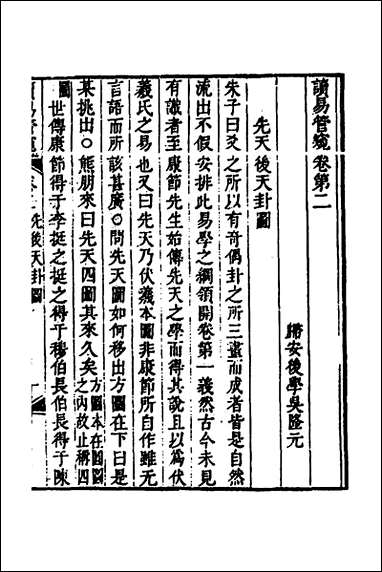 讀易管窺卷第二
歸安後學吳隆元
先天後天卦圖
朱子曰爻之所以有奇偶卦之所三畫而成者皆是自然
流出不假安排此易學之綱領開卷第一義然古今未見
有識者至康節先生始傳先天之學而得其說且以為伏
羲氏之易也又曰先天乃伏羲本圖非康節所自作雖無
言語而所該甚廣○問先天圖如何移出方圖在下曰是
某挑出○熊朋來曰先天四圖其來久矣方圖本在圓圖之內故止稱四
圖世傳康節得于李挺之挺之得于穆伯長伯長得于陳
先後天卦圖